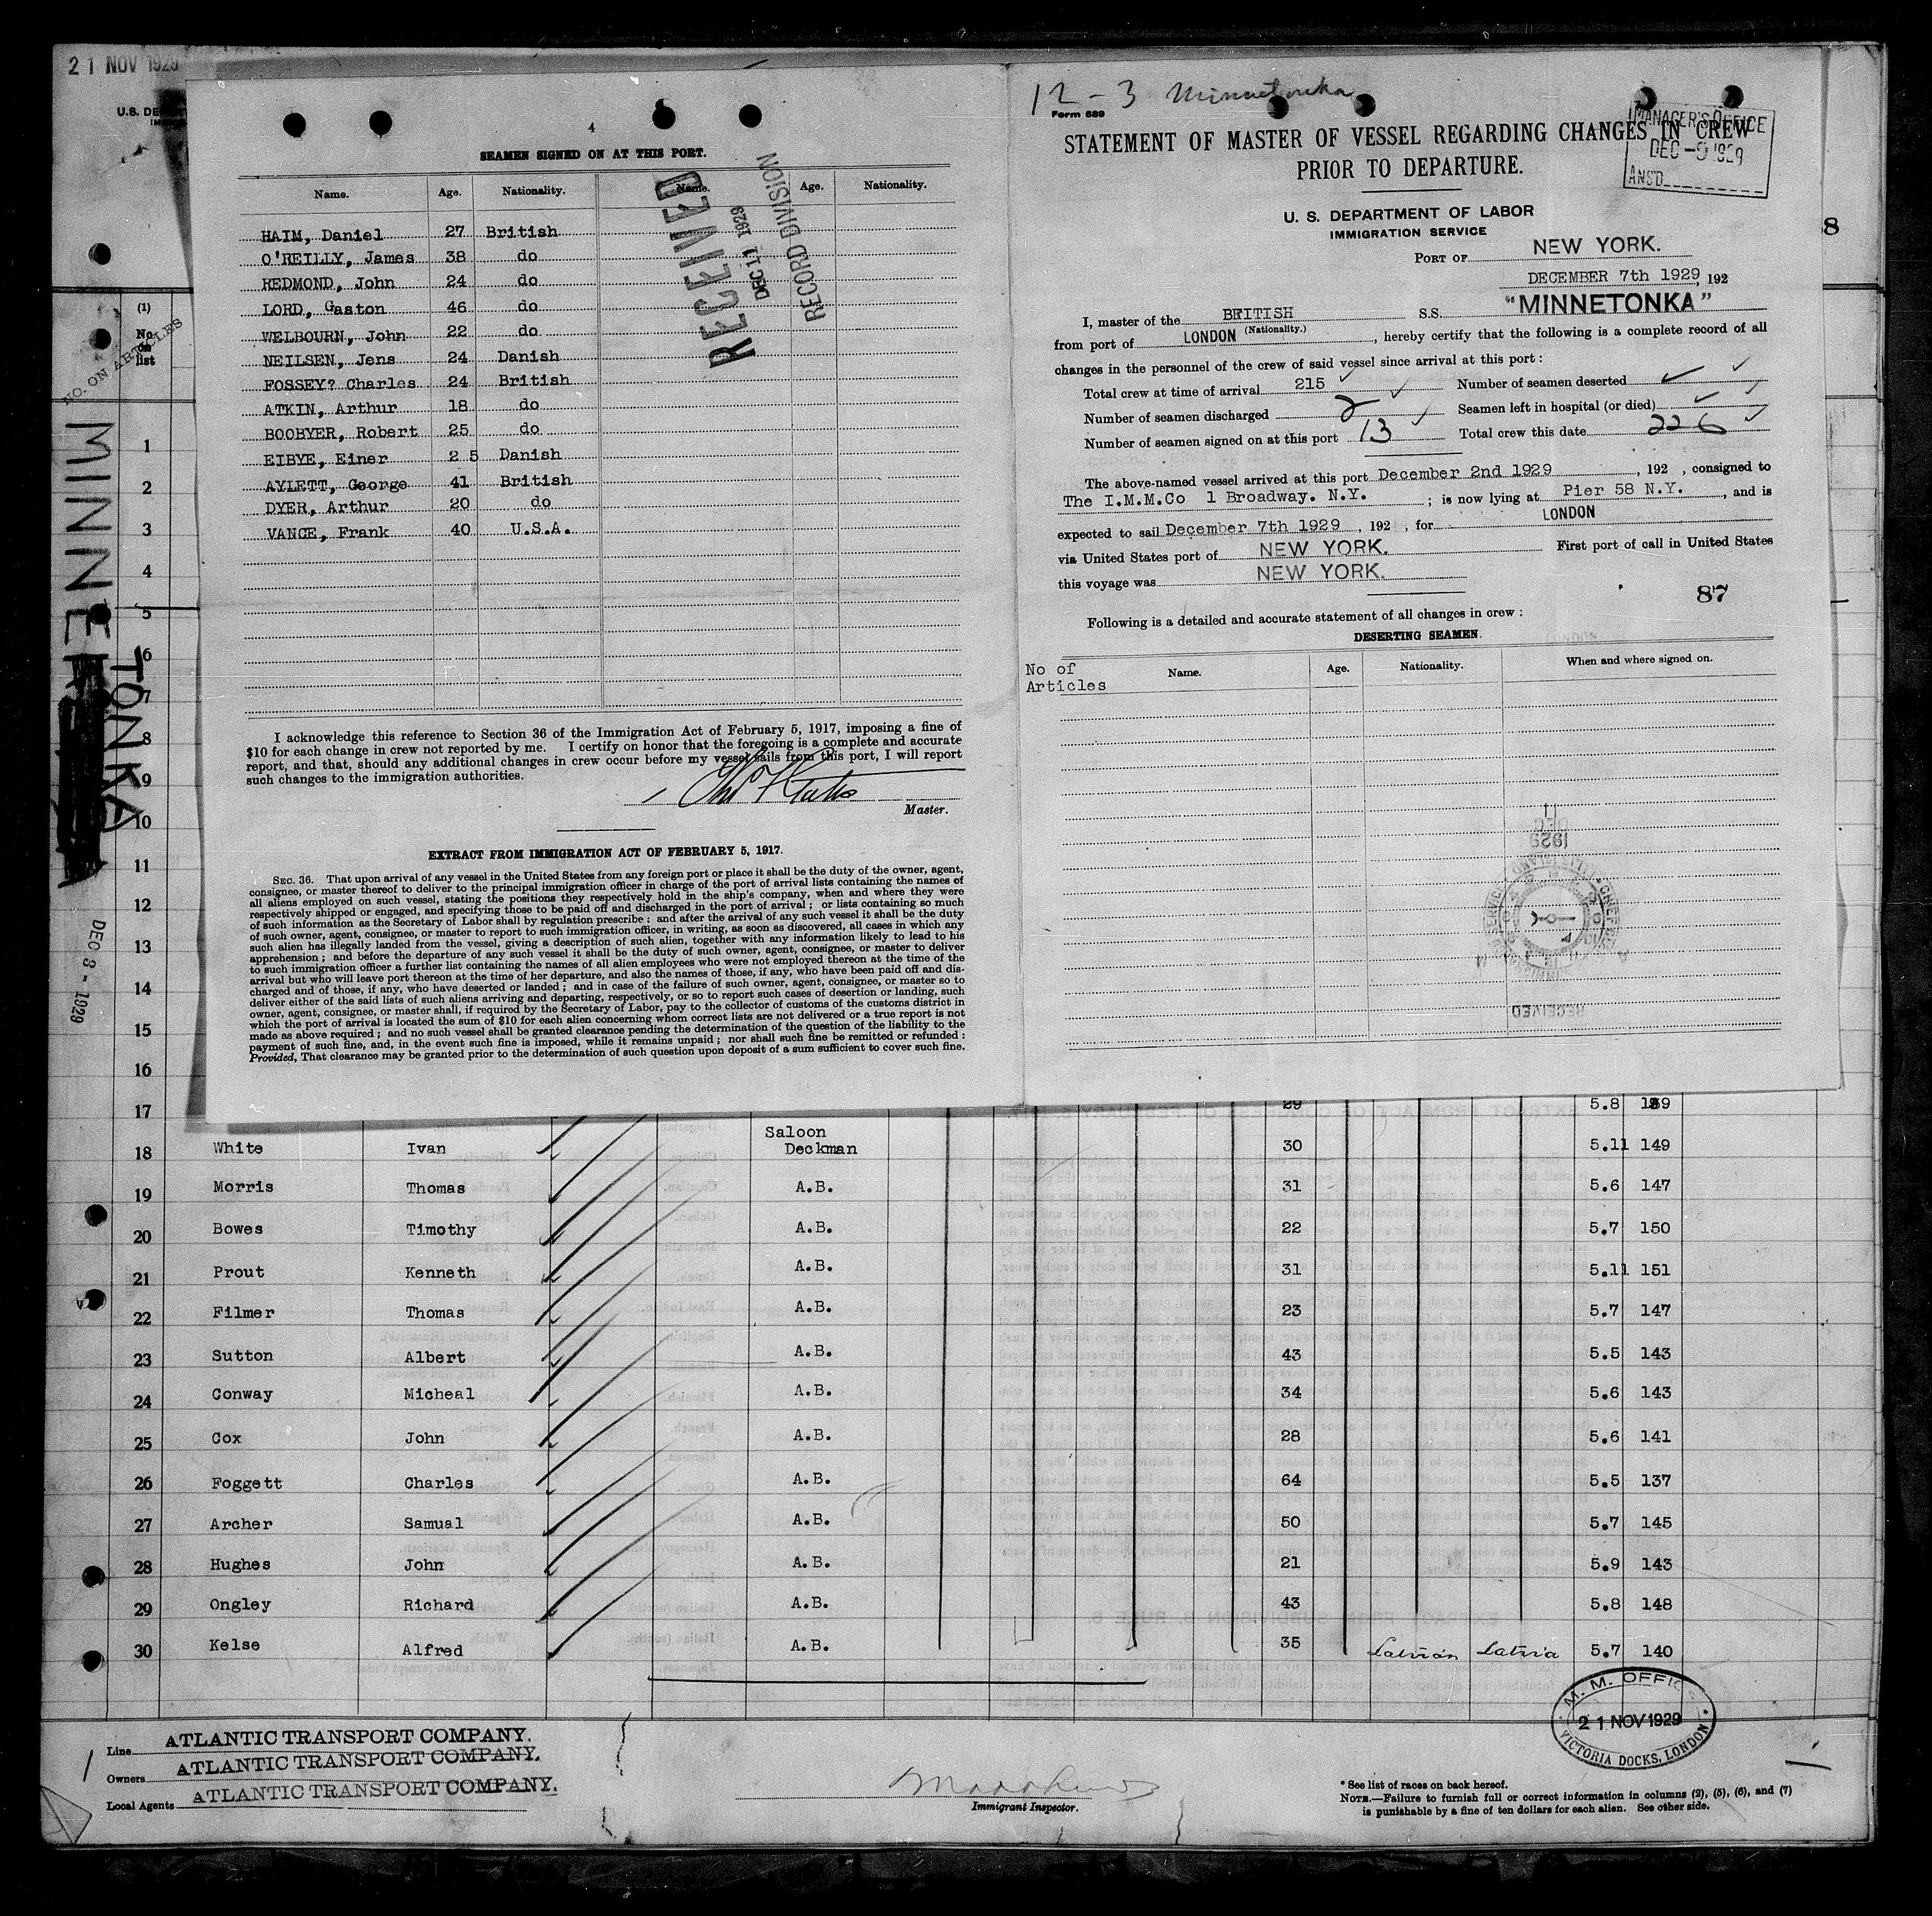 21 NOV 1929
U.S. DE
4
SEAMEN SIGNED ON AT THIS PORT.
Name. Age. Nationality. Name. Age. Nationality.
HAIM, Daniel 27 British
O'REILLY, James 38 do
REDMOND, John 24 do
LORD, Gaston 46 do
WELBOURN, John 22 do
NEILSEN, Jens 24 Danish
FOSSEY? Charles 24 British
ATKIN, Arthur 18 do
BOOBYER, Robert 25 do
EIBYE, Einer 2 5 Danish
AYLETT, George 41 British
DYER, Arthur 20 do
VANCE, Frank 40 U.S.A.
RECEIVED
DEC 11 1929
RECORD DIVISION
I acknowledge this reference to Section 36 of the Immigration Act of February 5, 1917, imposing a fine of
$10 for each change in crew not reported by me. I certify on honor that the foregoing is a complete and accurate
report, and that, should any additional changes in crew occur before my vessel sails from this port, I will report
such changes to the immigration authorities.
Master.
EXTRACT FROM IMMIGRATION ACT OF FEBRUARY 5, 1917.
SEC. 36. That upon arrival of any vessel in the United States from any foreign port or place it shall be the duty of the owner, agent,
consignee, or master thereof to deliver to the principal immigration officer in charge of the port of arrival lists containing the names of
all aliens employed on such vessel, stating the positions they respectively hold in the ship's company, when and where they were
respectively shipped or engaged, and specifying those to be paid off and discharged in the port of arrival; or lists containing so much
of such information as the Secretary of Labor shall by regulation prescribe; and after the arrival of any such vessel it shall be the duty
of such owner, agent, consignee, or master to report to such immigration officer, in writing, as soon as discovered, all cases in which any
such alien has illegally landed from the vessel, giving a description of such alien, together with any information likely to lead to his
apprehension; and before the departure of any such vessel it shall be the duty of such owner, agent, consignee, or master to deliver
to such immigration officer a further list containing the names of all alien employees who were not employed thereon at the time of the
arrival but who will leave port thereon at the time of her departure, and also the names of those, if any, who have been paid off and dis-
charged and of those, if any, who have deserted or landed; and in case of the failure of such owner, agent, consignee, or master so to
deliver either of the said lists of such aliens arriving and departing, respectively, or so to report such cases of desertion or landing, such
owner, agent, consignee, or master shall, if required by the Secretary of Labor, pay to the collector of customs of the customs district in
which the port of arrival is located the sum of $10 for each alien concerning whom correct lists are not delivered or a true report is not
made as above required; and no such vessel shall be granted clearance pending the determination of the question of the liability to the
payment of such fine, and, in the event such fine is imposed, while it remains unpaid; nor shall such fine be remitted or refunded:
Provided, That clearance may be granted prior to the determination of such question upon deposit of a sum sufficient to cover such fine.
12 - 3 Minnetonka
Form 689
STATEMENT OF MASTER OF VESSEL REGARDING CHANGES IN CREW
PRIOR TO DEPARTURE.
MANAGER'S OFFICE
DEC -9 1929
ANS'D
U. S. DEPARTMENT OF LABOR
IMMIGRATION SERVICE
PORT OF NEW YORK.
DECEMBER 7th 1929, 192
I, master of the BRITISH S.S. "MINNETONKA"
(Nationality.)
from port of LONDON, hereby certify that the following is a complete record of all
changes in the personnel of the crew of said vessel since arrival at this port:
Total crew at time of arrival 215 Number of seamen deserted
Number of seamen discharged 2 Seamen left in hospital (or died)
Number of seamen signed on at this port 13 Total crew this date 226
The above-named vessel arrived at this port December 2nd 1929, 192 , consigned to
The I.M.M.Co 1 Broadway. N.Y. ; is now lying at Pier 58 N.Y., and is
expected to sail December 7th 1929, 192 , for LONDON
via United States port of NEW YORK. First port of call in United States
this voyage was NEW YORK.
87
Following is a detailed and accurate statement of all changes in crew:
DESERTING SEAMEN.
No of
Articles
Name. Age. Nationality. When and where signed on.
11
DEC
1929
RECEIVED
8
(1)
No
on
list
NO. ON ARTICLES
MINNE
TONKA
DEC 3 - 1929
1
2
3
4
5
6
7
8
9
10
11
12
13
14
15
16
17 29 5.8
18 White Ivan Saloon
Deckman 30 5.11 149
19 Morris Thomas A.B. 31 5.6 147
20 Bowes Timothy A.B. 22 5.7 150
21 Prout Kenneth A.B. 31 5.11 151
22 Filmer Thomas A.B. 23 5.7 147
23 Sutton Albert A.B. 43 5.5 143
24 Conway Micheal A.B. 34 5.6 143
25 Cox John A.B. 28 5.6 141
26 Foggett Charles A.B. 64 5.5 137
27 Archer Samual A.B. 50 5.7 145
28 Hughes John A.B. 21 5.9 143
29 Ongley Richard A.B. 43 5.8 148
30 Kelse Alfred A.B. 35 Latvian Latvia 5.7 140
Line ATLANTIC TRANSPORT COMPANY.
Owners ATLANTIC TRANSPORT COMPANY.
Local Agents ATLANTIC TRANSPORT COMPANY.
Immigrant Inspector.
M. M. OFFIC
21 NOV 1929
VICTORIA DOCKS, LONDON
* See list of races on back hereof.
NOTE.—Failure to furnish full or correct information in columns (2), (5), (6), and (7)
is punishable by a fine of ten dollars for each alien. See other side.